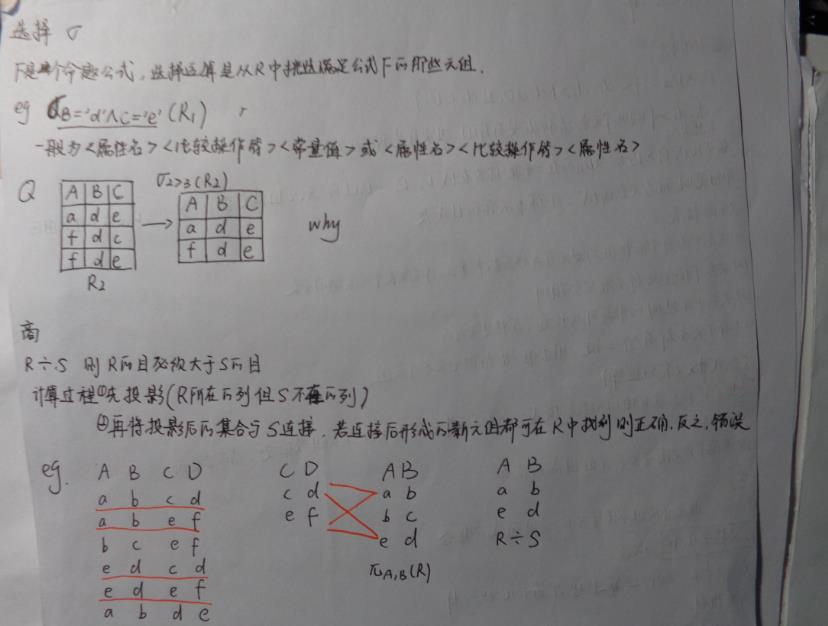 选择 σ
F是一个命题公式，选择运算是从R中挑选满足公式F的那些元组．
eg σB='d'∧C='e'(R1)
一般为<属性名><比较操作符><常量值>或<属性名><比较操作符><属性名>
Q
A B C
a d e
f d c
f d e
R2
σ2>3(R2)
A B C
a d e
f d e
why
商
R÷S 则R的目必须大于S的目
计算过程①先投影(R所在的列但S不在的列)
②再将投影后的集合与S连接，若连接后形成的新元组都可在R中找到则正确，反之，错误
eg.
A B C D
a b c d
a b e f
b c e f
e d c d
e d e f
a b d e
C D
c d
e f
A B
a b
b c
e d
πA,B(R)
A B
a b
e d
R÷S